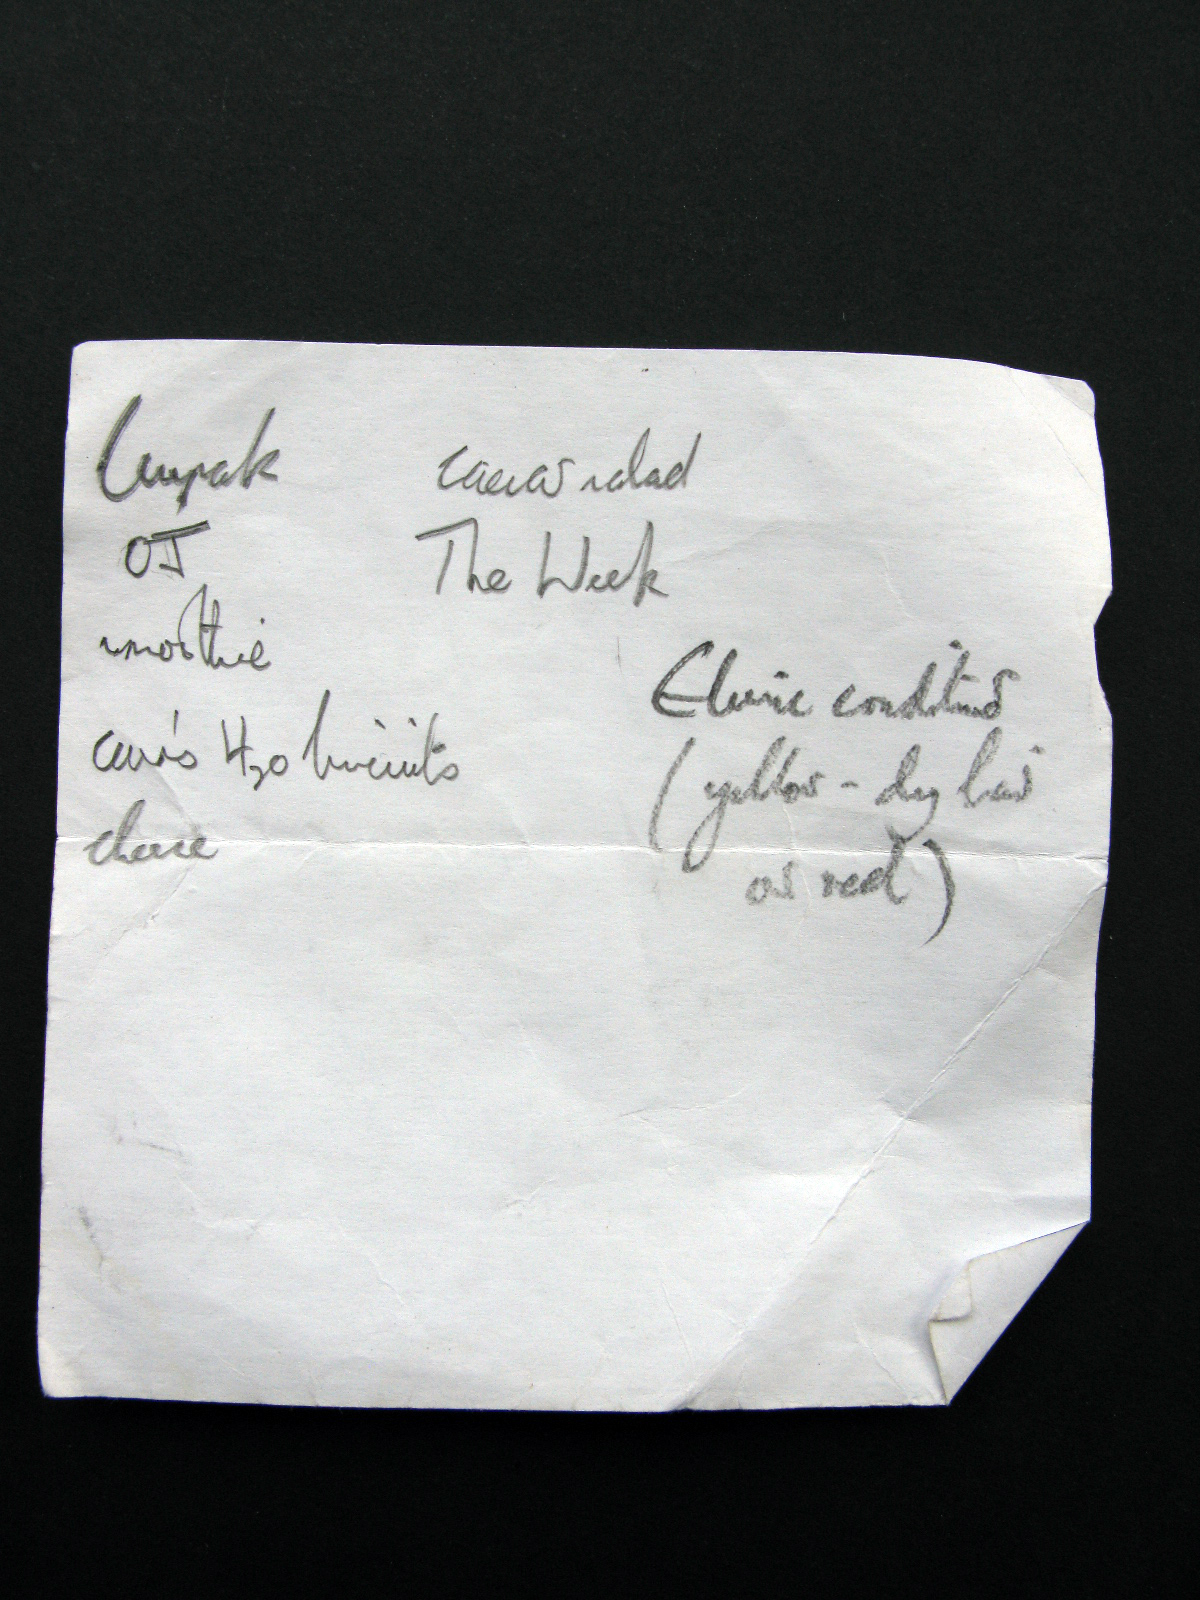 Lurpak
OJ
smoothie
carr's H2O biscuits
cheese
caesar salad
The Week
Elvive conditioner
(yellow - dry hair
or red)